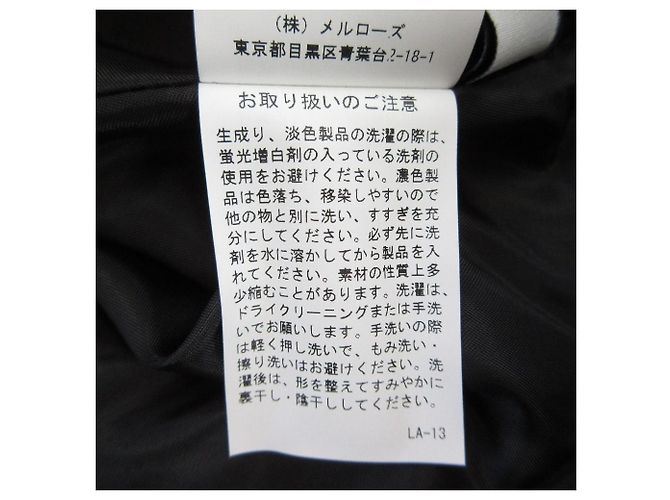 (株) メルローズ
東京都目黒区青葉台2-18-1
お取り扱いのご注意
生成り、淡色製品の洗濯の際は、
蛍光増白剤の入っている洗剤の
使用をお避けください。濃色製
品は色落ち、移染しやすいので
他の物と別に洗い、すすぎを充
分にしてください。必ず先に洗
剤を水に溶かしてから製品を入
れてください。素材の性質上多
少縮むことがあります。洗濯は、
ドライクリーニングまたは手洗
いでお願いします。手洗いの際
は軽く押し洗いで、もみ洗い・
擦り洗いはお避けください。洗
濯後は、形を整えてすみやかに
裏干し・陰干ししてください。
LA-13